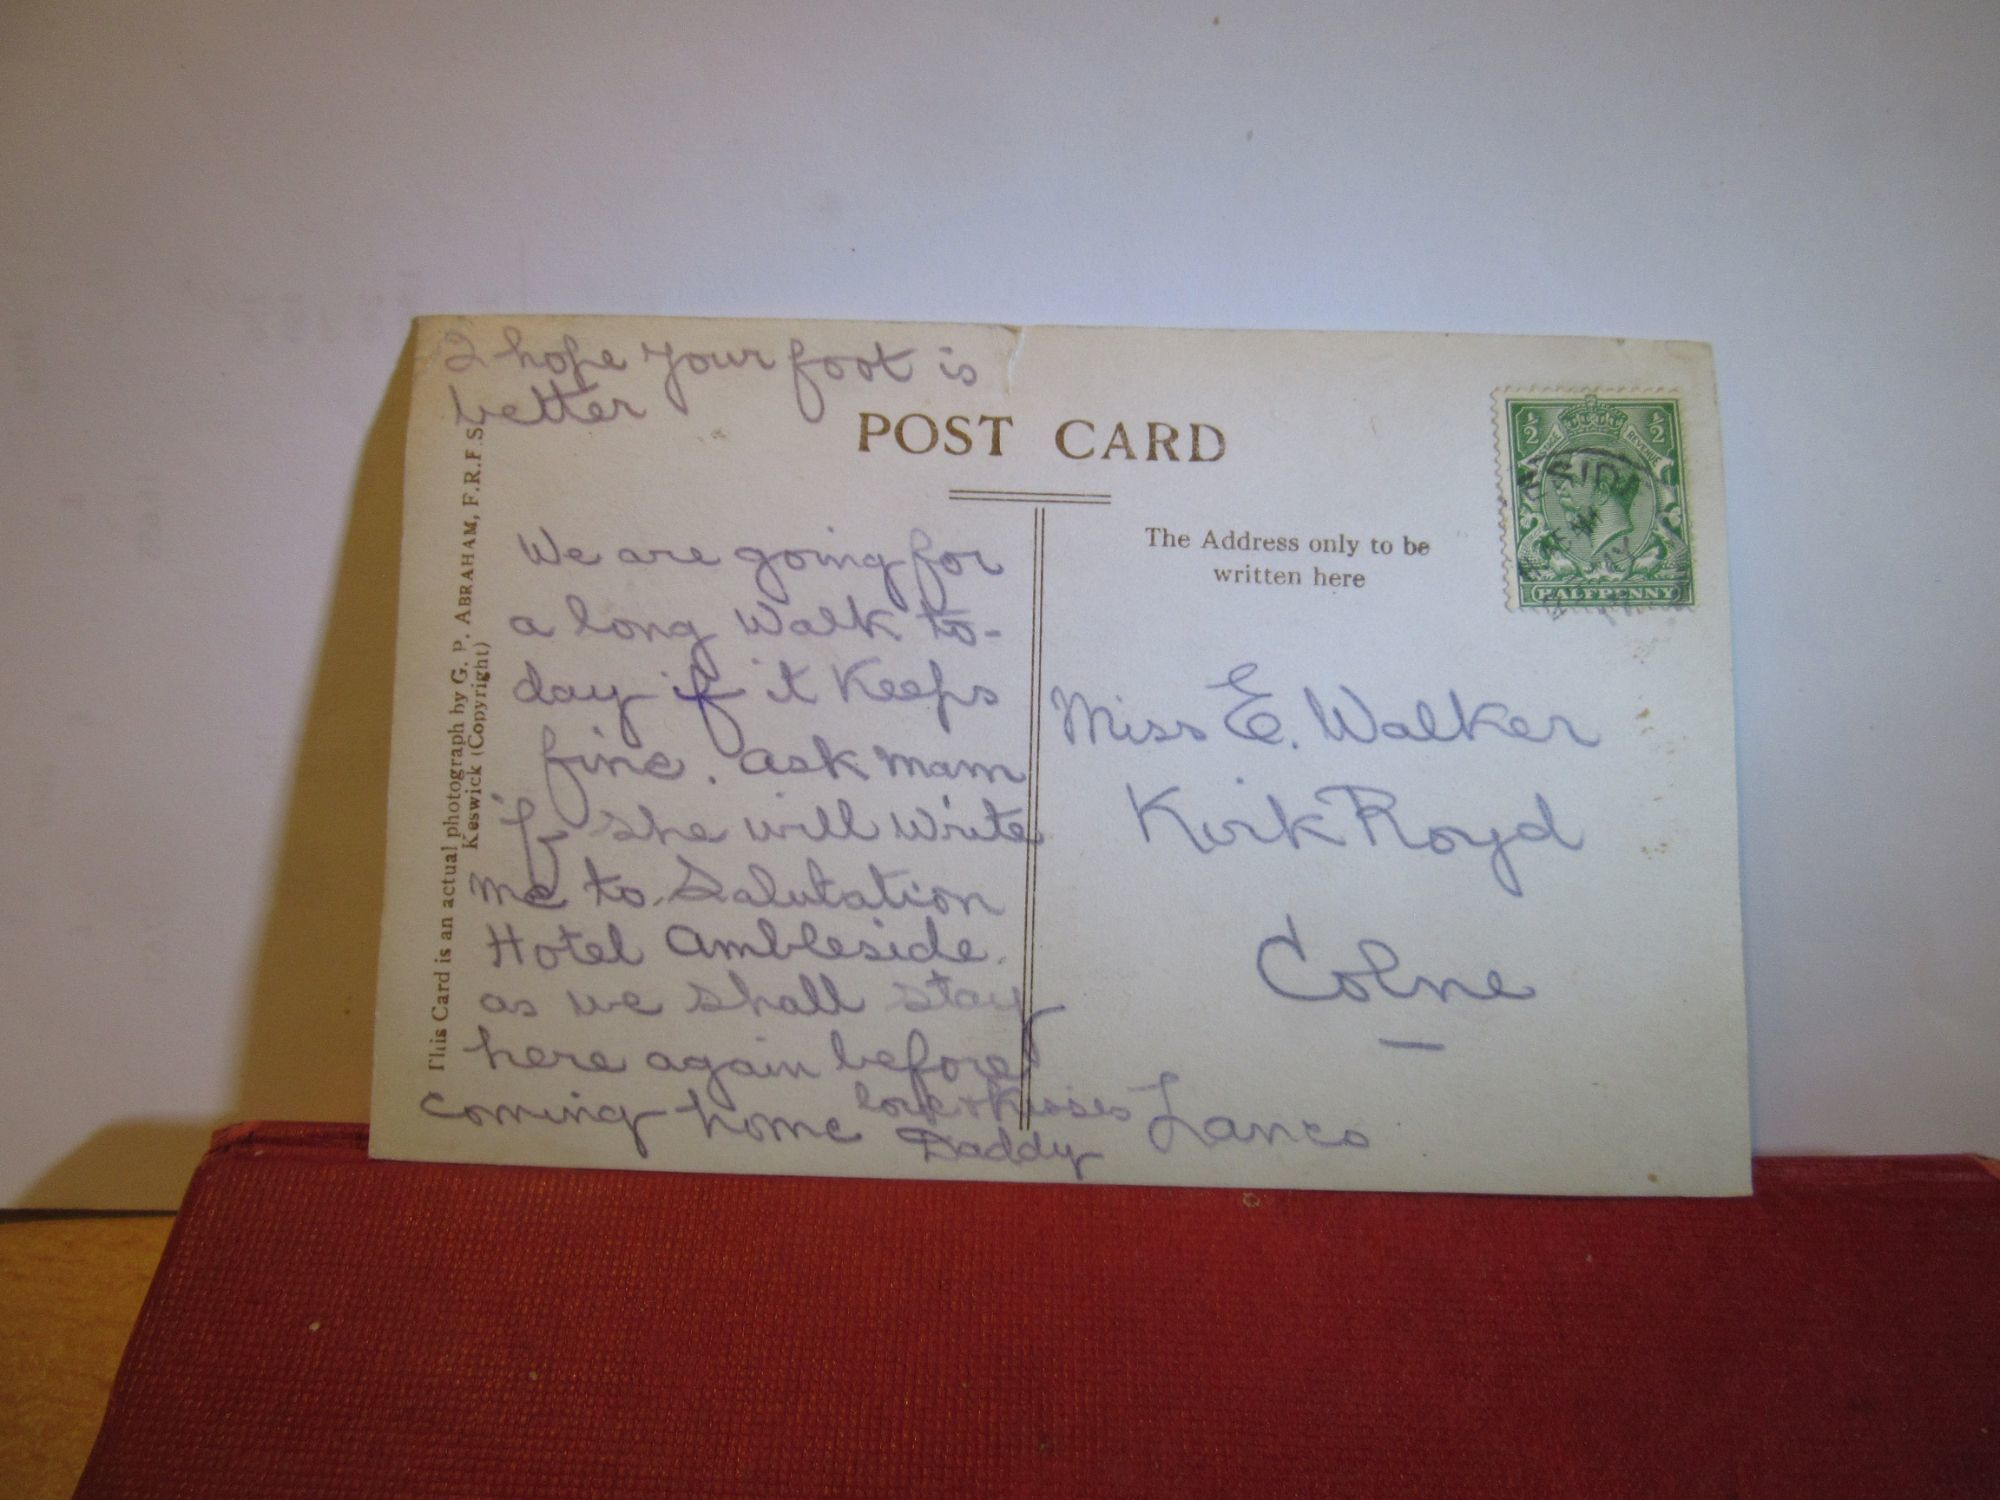 I hope your foot is
better
POST CARD
This Card is an actual photograph by G. P. ABRAHAM, F.R.P.S.
Keswick (Copyright)
We are going for
a long walk to-
day if it keeps
fine. ask mam
if she will write
me to Salutation
Hotel Ambleside.
as we shall stay
here again before
coming home love + kisses
Daddy
The Address only to be
written here
½ ½
REVENUE
HALFPENNY
Miss E. Walker
Kirk Royd
Colne
Lancs